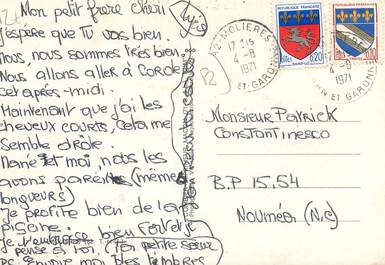 Mon petit frère chéri
j'espère que tu vas bien.
nous, nous sommes très bien.
Nous allons aller à Corde
cet après-midi.
Maintenant que j'ai les
cheveux courts, cela me
semble drôle.
et moi, nous les
avons pareils (même
longueurs)
Je profite bien de la
piscine.
Je t'embrasse bien fort et je
pense à toi, Ta petite soeur
moi des timbres
82-MOLIERES
17 H15
4-8
1971
ET-GARONNE
REPUBLIQUE FRANÇAISE
0,20
SAINT-LO
17 H15
4-8
1971
ET GARONNE
REPUBLIQUE FRANÇAISE
0,10
Monsieur Patrick
Constantinesco
B.P 15.54
Nouméa (N.C)